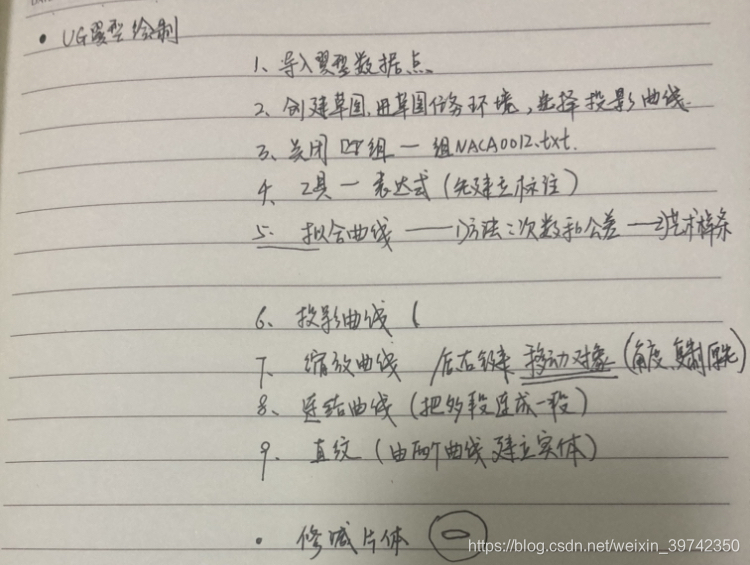 • UG翼型绘制
1、导入翼型数据点
2、创建草图,用草图任务环境,选择投影曲线
3、关闭 组一组NACA0012.txt.
4、工具一表达式(先建立标注)
5、拟合曲线——1)方法:次数和公差—2)艺术样条
6、投影曲线(
7、缩放曲线 /后右键 移动对象(角度、复制原先)
8、连结曲线(把多段连成一段)
9、直纹(由两个曲线建立实体)
• 修减片体
https://blog.csdn.net/weixin_39742350